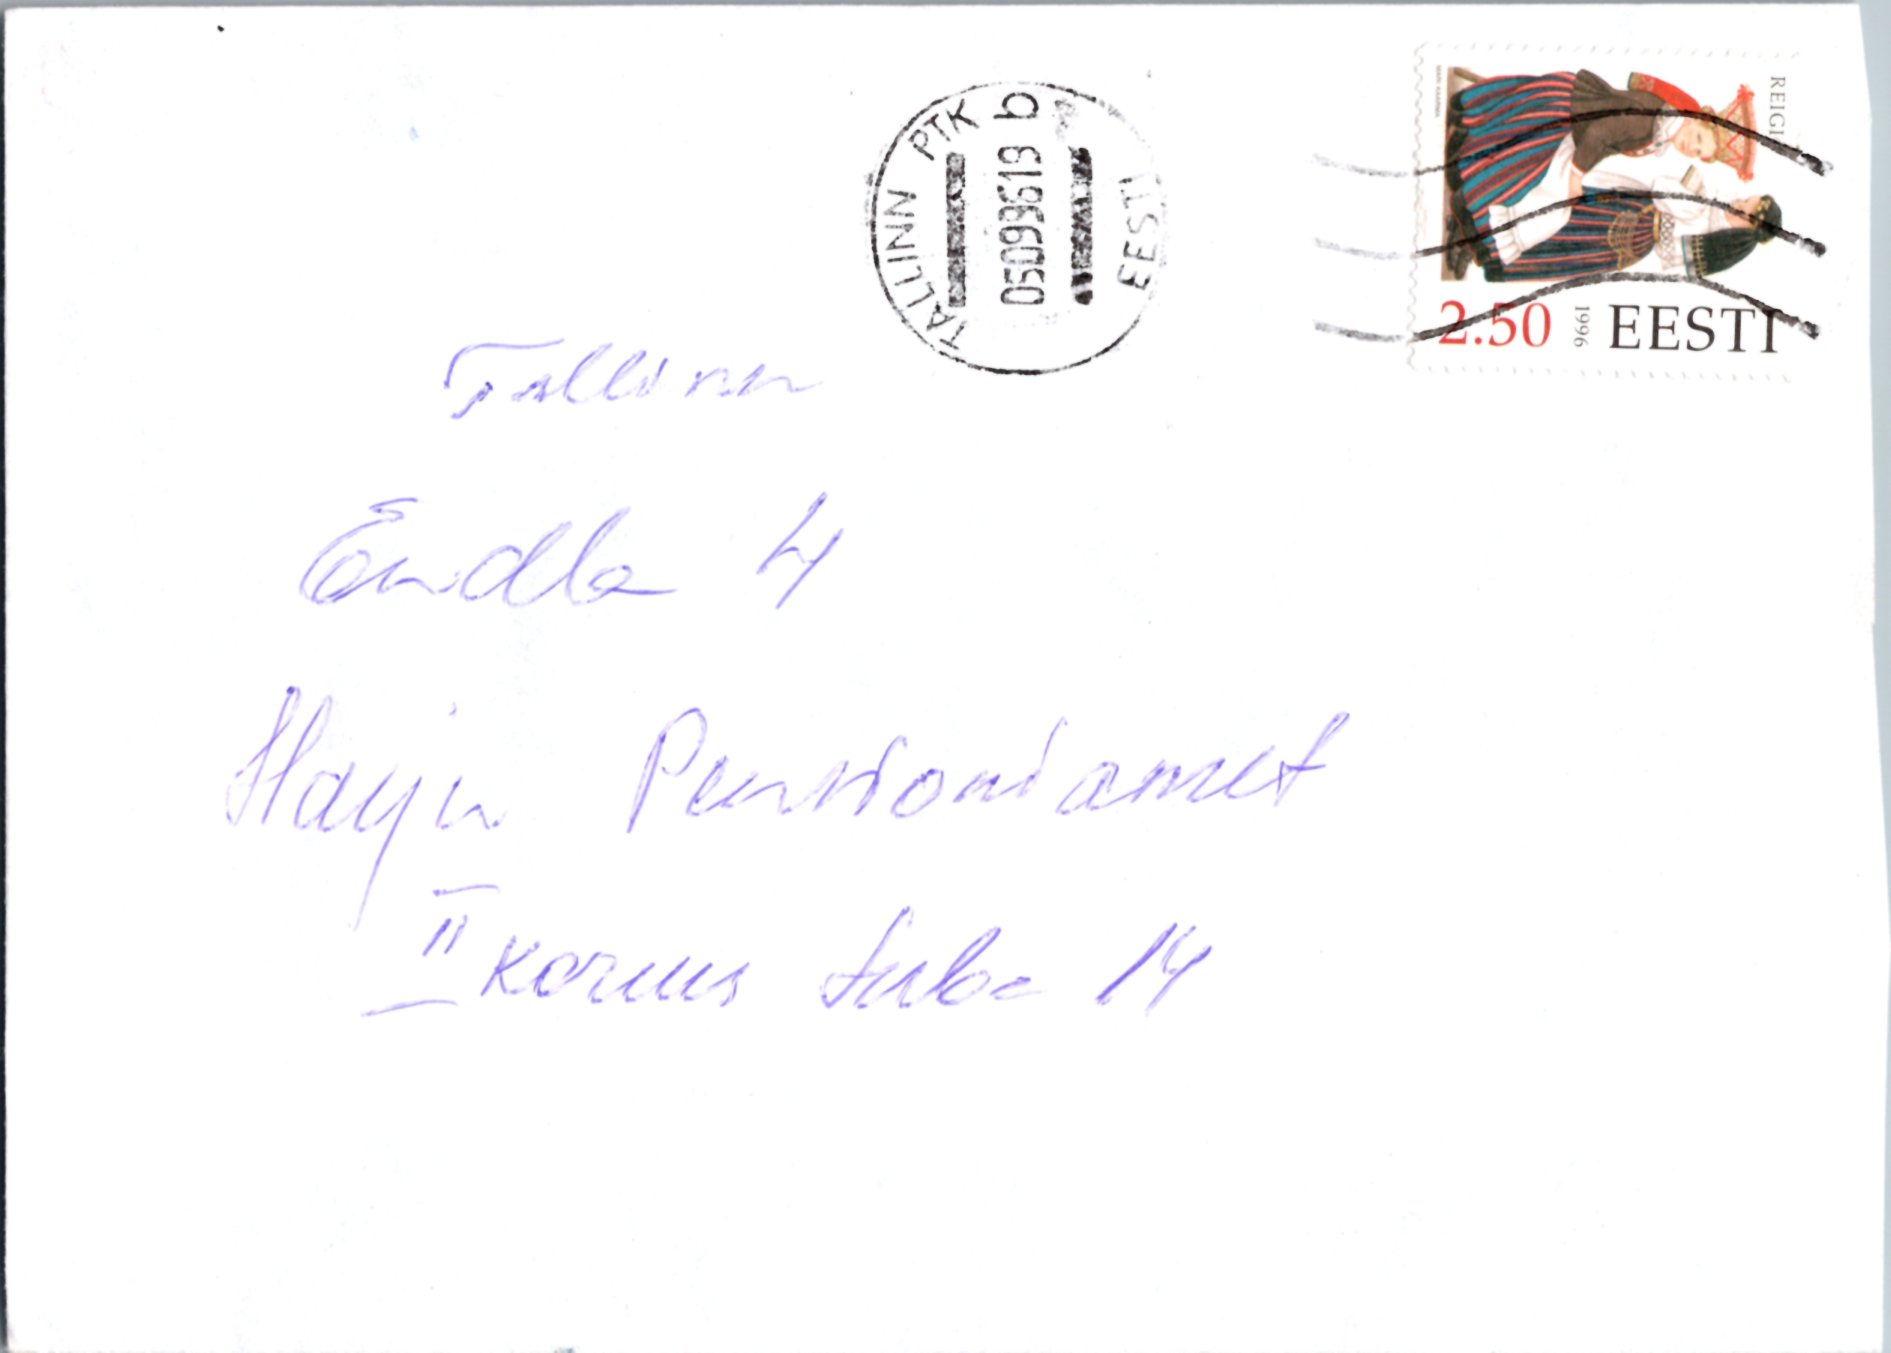 TALLINN PTK b
05099619
EESTI
REIGI
MARI KAARMA
2.50 1996 EESTI
Tallinn
Endla 4
Harju Pensioniamet
II Korrus tuba 14